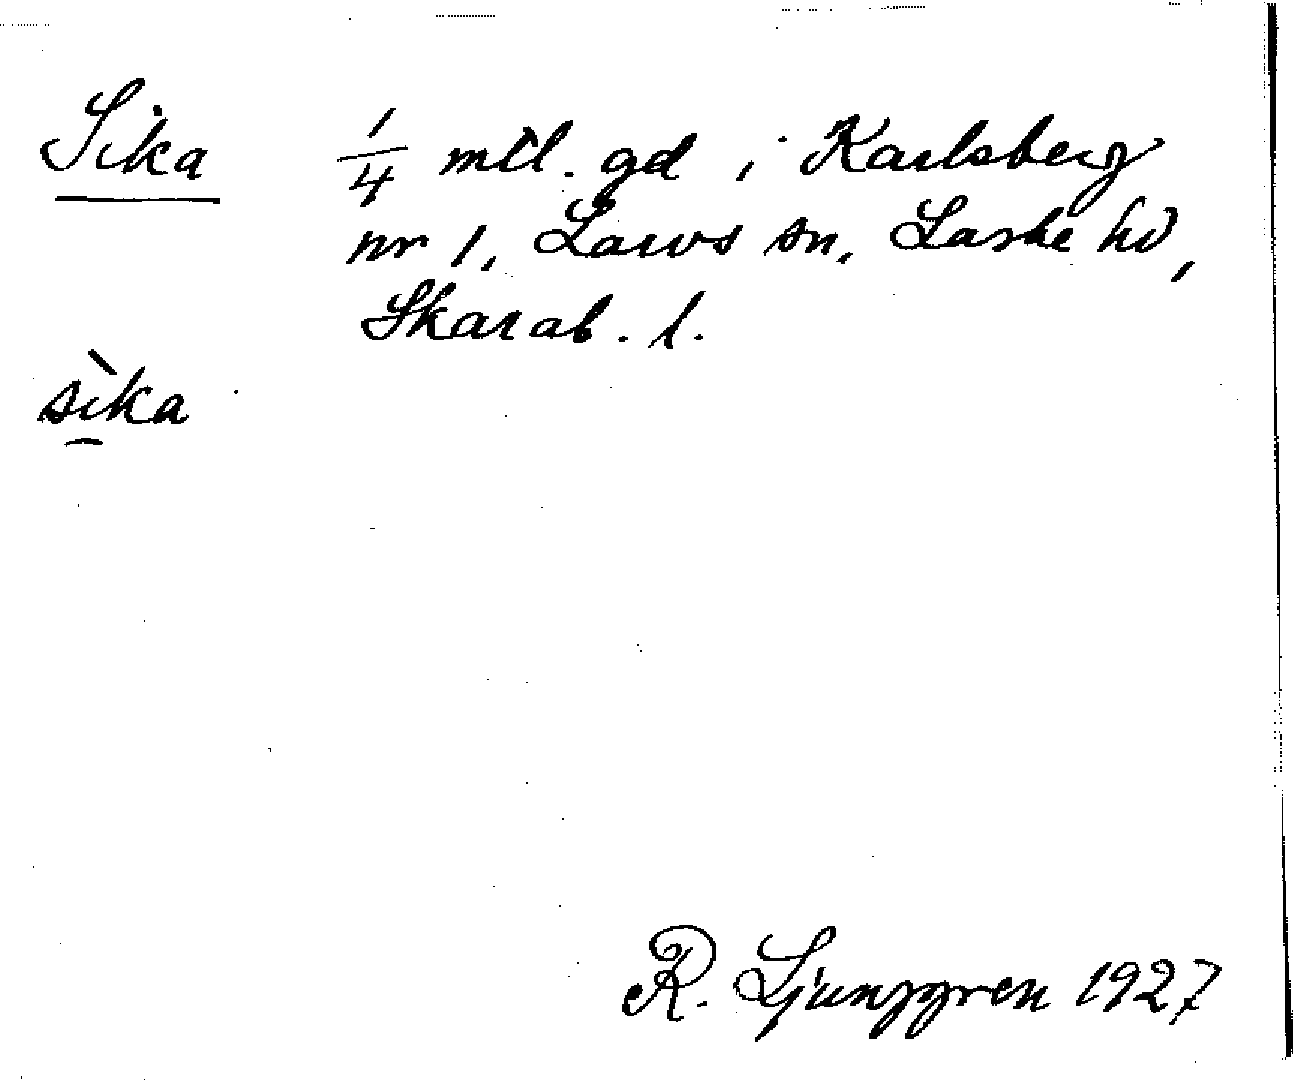 Sika 1/4 mtl. gd i Karlsberg
nr 1, Larvs sn, Laske hd,
Skarab. l.
sìka
R. Ljunggren 1927